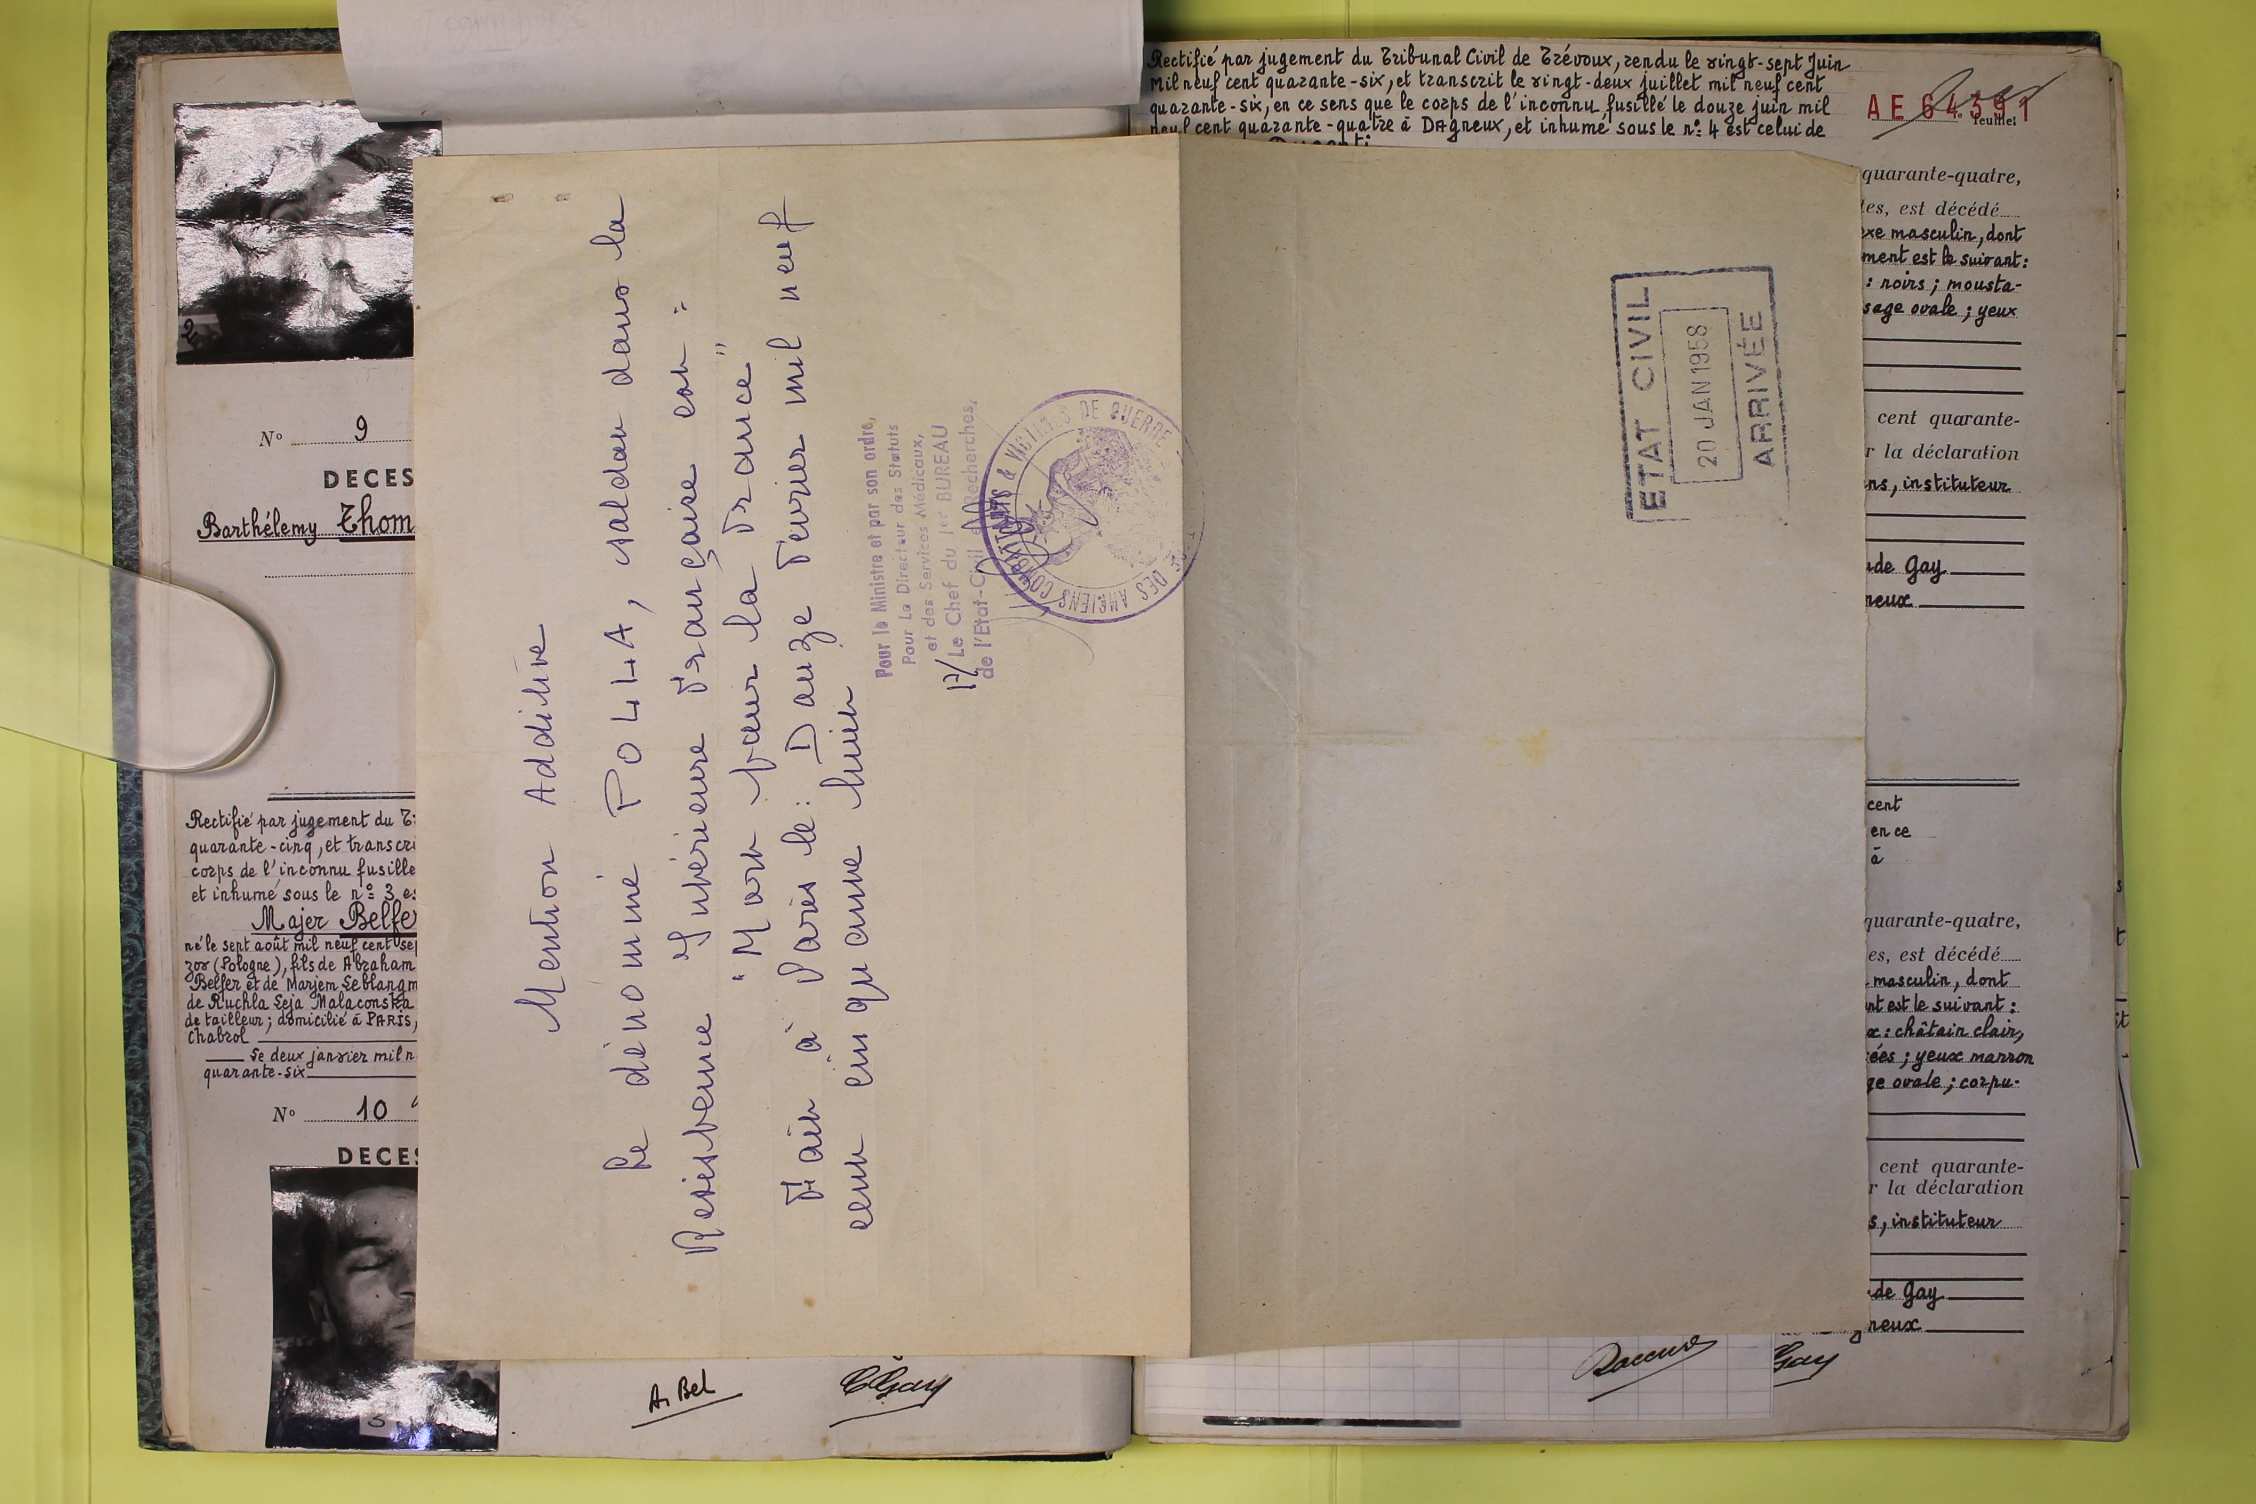 2
N° 9
DECES
Barthélemy Thom
Rectifié par jugement du T
quarante-cinq, et transcri
corps de l'inconnu fusillé
et inhumé sous le n° 3 es
Majer Belfe
né le sept août mil neuf cent sep
zor (Pologne), fils de Abraham
Belfer et de Marjem Leblangm
de Ruchla Leja Malaconska
de tailleur; domicilié à PARIS,
Chabrol
Le deux janvier mil n
quarante-six
N° 10
DECES
3
A. Bel
CGay
Mention Additive
Le dénommé POLLA, soldat dans la
Résistance Intérieure Française est :
"Mort pour la France"
Fait à Paris le : Douze Février mil neuf
cent cinquante huit
Pour le Ministre et par son ordre,
Pour Le Directeur des Statuts
et des Services Médicaux,
P/ Le Chef du 1er BUREAU
de l'Etat-Civil et Recherches,
DES ANCIENS COMBATTANTS & VICTIMES DE GUERRE
ETAT CIVIL
20 JAN 1958
ARRIVÉE
Rectifié par jugement du Tribunal Civil de Trévoux, rendu le vingt-sept Juin
mil neuf cent quarante-six, et transcrit le vingt-deux juillet mil neuf cent
quarante-six, en ce sens que le corps de l'inconnu fusillé le douze juin mil
neuf cent quarante-quatre à Dagneux, et inhumé sous le n° 4 est celui de
AE 64391
feuillet
quarante-quatre,
tes, est décédé
exe masculin, dont
ment est le suivant:
: noirs; mousta-
sage ovale; yeux
cent quarante-
r la déclaration
ns, instituteur
de Gay
neux
cent
en ce
à
quarante-quatre,
es, est décédé
masculin, dont
nt est le suivant:
x: châtain clair,
ées; yeux marron
ge ovale; corpu-
cent quarante-
r la déclaration
s, instituteur
de Gay
neux
Gay